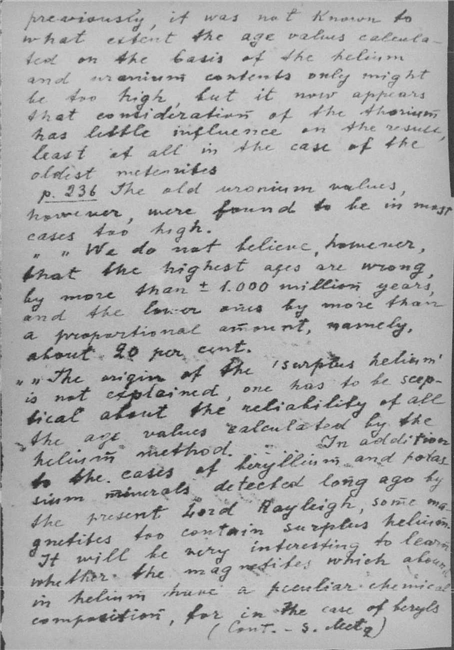 previously, it was not known to
what extent the age values calcula-
ted on the basis of the helium
and uranium contents only might
be too high but it now appears
that consideration of the thorium
has little influence on the result,
least of all in the case of the
oldest meteorites
p. 236 The old uronium values,
however, were found to be in most
cases too high.
" " We do not believe, however,
that the highest ages are wrong,
by more than ± 1.000 million years,
and the lower ones by more than
a proportional amount, namely,
about 20 per cent.
" " The origin of the 'surplus helium'
is not explained, one has to be scep-
tical about the reliability of all
the age values calculated by the
helium method. In addition
to the cases of beryllium and potas
sium minerals detected long ago by
the present Lord Rayleigh, some ma-
gnetites too contain surplus helium.
It will be very interesting to learn
whether the magnetites which abound
in helium have a peculiar chemical
composition, for in the case of beryls
(Cont. - s. Met 2)